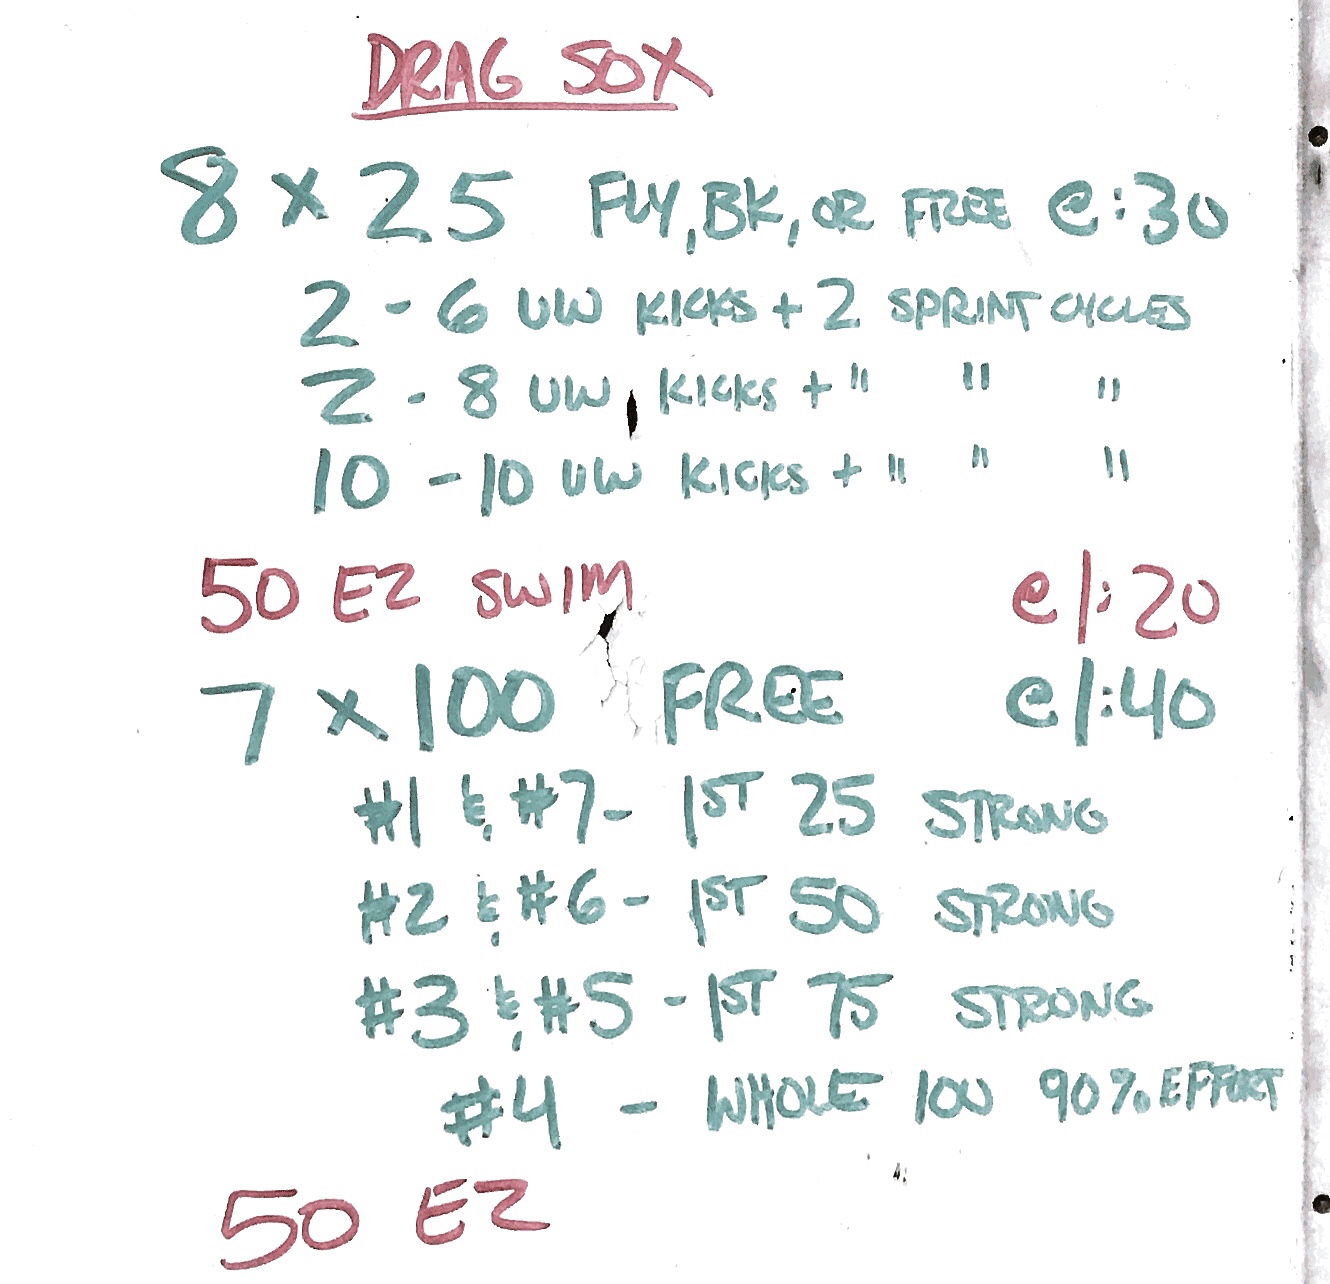 DRAG SOX
8 x 25 FLY, BK, OR FREE @ :30
2 - 6 UW KICKS + 2 SPRINT CYCLES
2 - 8 UW KICKS + " " "
10 - 10 UW KICKS + " " "
50 EZ SWIM @ 1:20
7 x 100 FREE @ 1:40
#1 & #7 - 1ST 25 STRONG
#2 & #6 - 1ST 50 STRONG
#3 & #5 - 1ST 75 STRONG
#4 - WHOLE 100 90% EFFORT
50 EZ